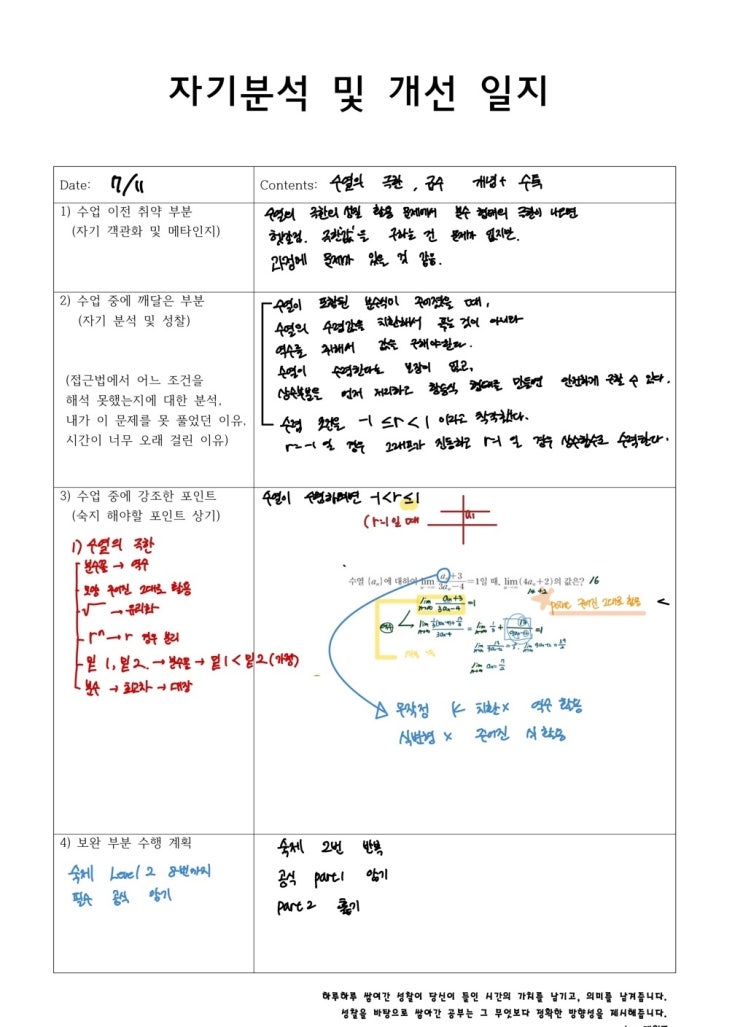 자기분석 및 개선 일지
Date: 7/11
Contents: 수열의 극한, 급수 개념 + 수특
1) 수업 이전 취약 부분
(자기 객관화 및 메타인지)
수열의 극한의 성질 활용 문제에서 분수 형태의 극한이 나오면
헷갈림. 극한값을 구하는 건 문제가 없지만.
과정에 문제가 있을 것 같음.
2) 수업 중에 깨달은 부분
(자기 분석 및 성찰)
(접근법에서 어느 조건을
해석 못했는지에 대한 분석,
내가 이 문제를 못 풀었던 이유,
시간이 너무 오래 걸린 이유)
수열이 포함된 분수식이 주어졌을 때,
수열의 수렴값을 치환해서 푸는 것이 아니라
역수를 취해서 값을 구해야한다.
수열이 수렴한다는 보장이 없고,
상수부분을 먼저 처리하고 활동식 형태를 만들면 안전하게 구할 수 있다.
수렴 조건을 -1 ≤ r < 1 이라고 착각했다.
r = -1 일 경우 그래프가 진동하고 r=1 일 경우 상수함수로 수렴한다.
3) 수업 중에 강조한 포인트
(숙지 해야할 포인트 상기)
1) 수열의 극한
분수꼴 → 역수
모양 주어진 그대로 활용
√ → 유리화
rⁿ → r 경우 분리
밑 1, 밑 2 → 분수꼴 → 밑 1 < 밑 2 (가정)
분수 → 최고차 → 대장
수열이 수렴하려면 -1<r≤1
(r=1일 때
a₁
수열 {aₙ}에 대하여 lim aₙ+3 / 3aₙ-4 =1일 때, lim(4aₙ+2)의 값은? 16
14+2
point 주어진 그대로 활용
lim aₙ+3 / 3aₙ-4 = 1
무작정 치환 x 역수 활용
식변형 x 주어진 식 활용
4) 보완 부분 수행 계획
숙제 Level 2 8번까지
필수 공식 암기
숙제 2번 반복
공식 part 1 암기
part 2 훑기
하루하루 쌓여간 성찰이 당신이 들인 시간의 가치를 남기고, 의미를 남겨줍니다.
성찰을 바탕으로 쌓아간 공부는 그 무엇보다 정확한 방향성을 제시해줍니다.